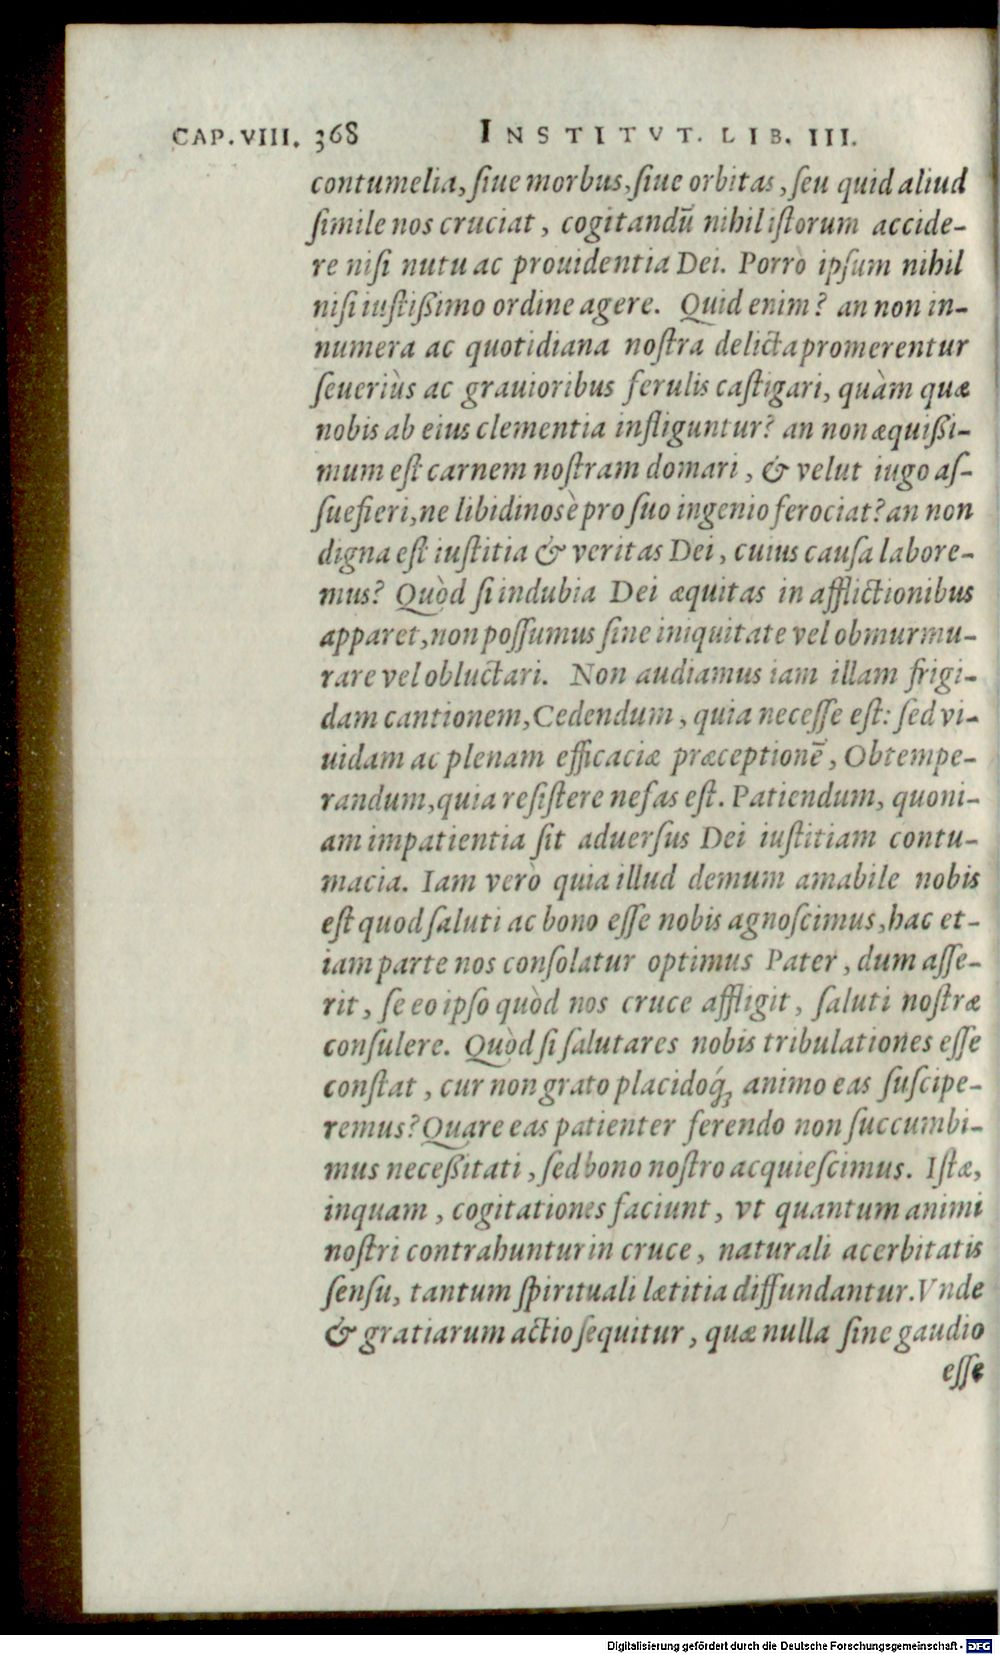 CAP. VIII. 368 INSTITVT. LIB. III.
contumelia, ſiue morbus, ſiue orbitas, ſeu quid aliud
ſimile nos cruciat, cogitandū nihil iſtorum accide-
re niſi nutu ac prouidentia Dei. Porrò ipſum nihil
niſi iuſtißimo ordine agere. Quid enim? an non in-
numera ac quotidiana noſtra delicta promerentur
ſeueriùs ac grauioribus ferulis caſtigari, quàm quæ
nobis ab eius clementia infliguntur? an non æquißi-
mum eſt carnem noſtram domari, & velut iugo aſ-
ſuefieri, ne libidinosè pro ſuo ingenio ferociat? an non
digna eſt iuſtitia & veritas Dei, cuius cauſa labore-
mus? Quòd ſi indubia Dei æquitas in afflictionibus
apparet, non poſſumus ſine iniquitate vel obmurmu-
rare vel obluctari. Non audiamus iam illam frigi-
dam cantionem, Cedendum, quia neceſſe eſt: ſed vi-
uidam ac plenam efficaciæ præceptionē, Obtempe-
randum, quia reſiſtere nefas eſt. Patiendum, quoni-
am impatientia ſit aduerſus Dei iuſtitiam contu-
macia. Iam verò quia illud demum amabile nobis
eſt quod ſaluti ac bono eſſe nobis agnoſcimus, hac et-
iam parte nos conſolatur optimus Pater, dum aſſe-
rit, ſe eo ipſo quòd nos cruce affligit, ſaluti noſtræ
conſulere. Quòd ſi ſalutares nobis tribulationes eſſe
conſtat, cur non grato placidoq́; animo eas ſuſcipe-
remus? Quare eas patienter ferendo non ſuccumbi-
mus neceßitati, ſed bono noſtro acquieſcimus. Iſtæ,
inquam, cogitationes faciunt, vt quantum animi
noſtri contrahuntur in cruce, naturali acerbitatis
ſenſu, tantum ſpirituali lætitia diffundantur. Vnde
& gratiarum actio ſequitur, quæ nulla ſine gaudio
eſſe
Digitalisierung gefördert durch die Deutsche Forschungsgemeinschaft - DFG